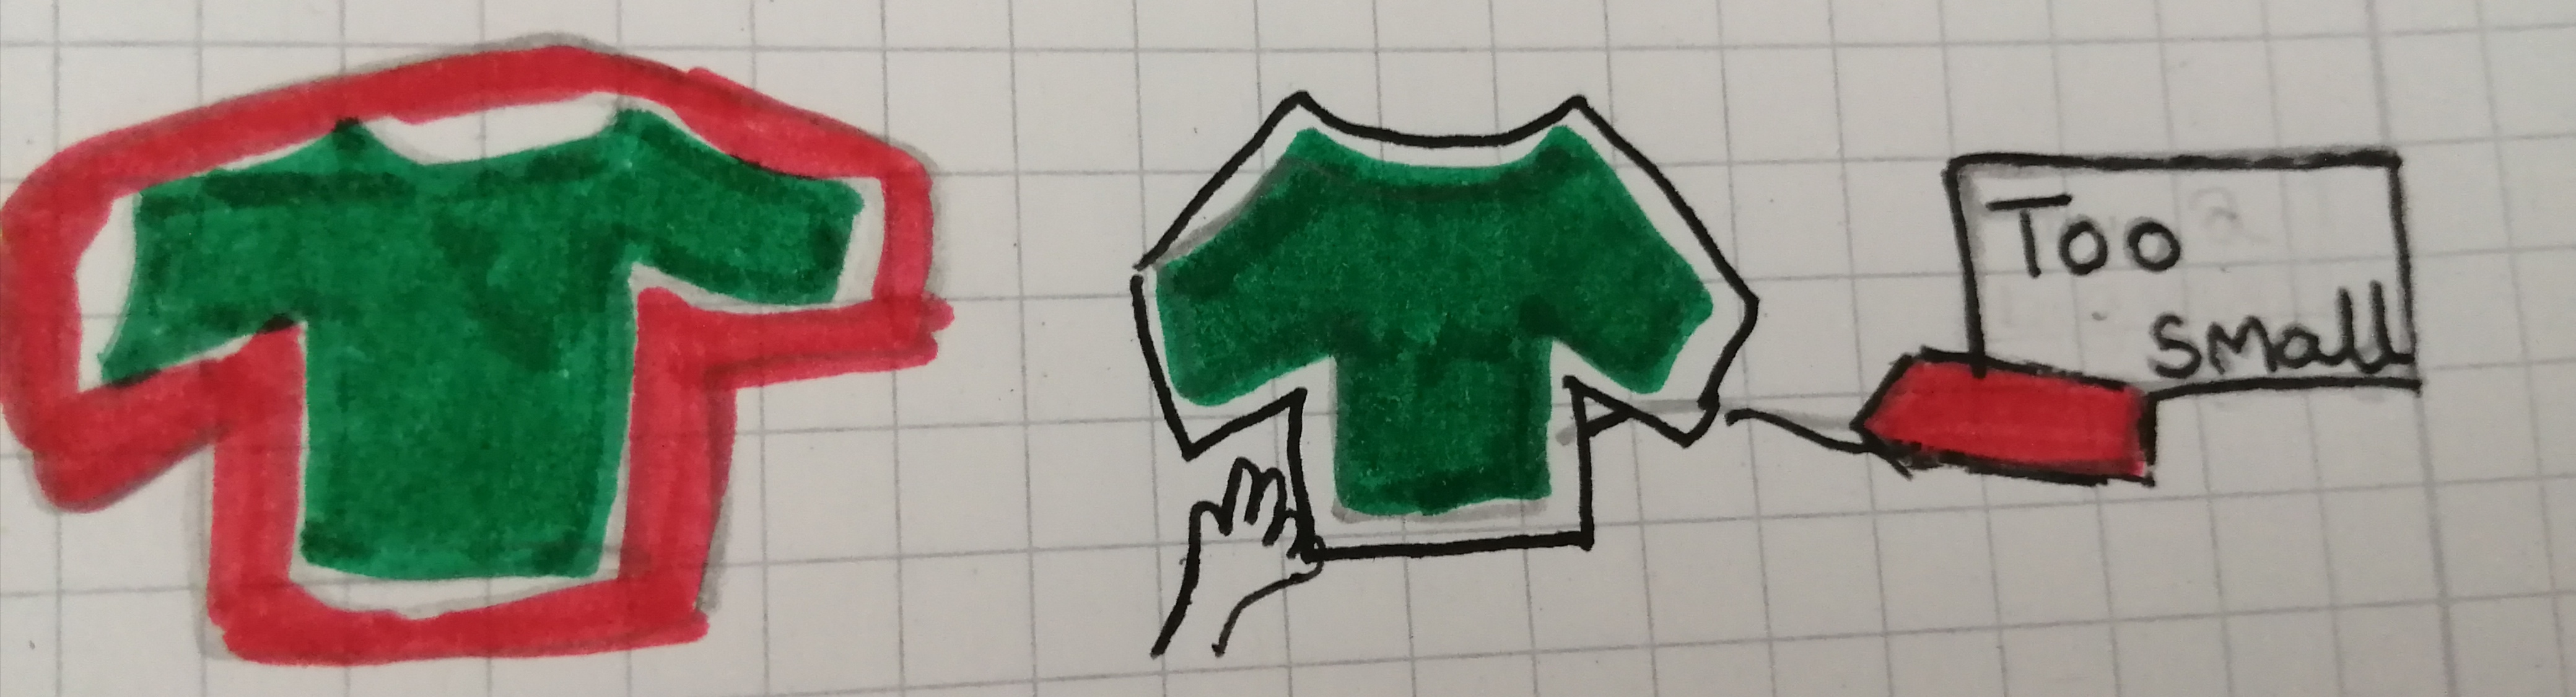 Too
small